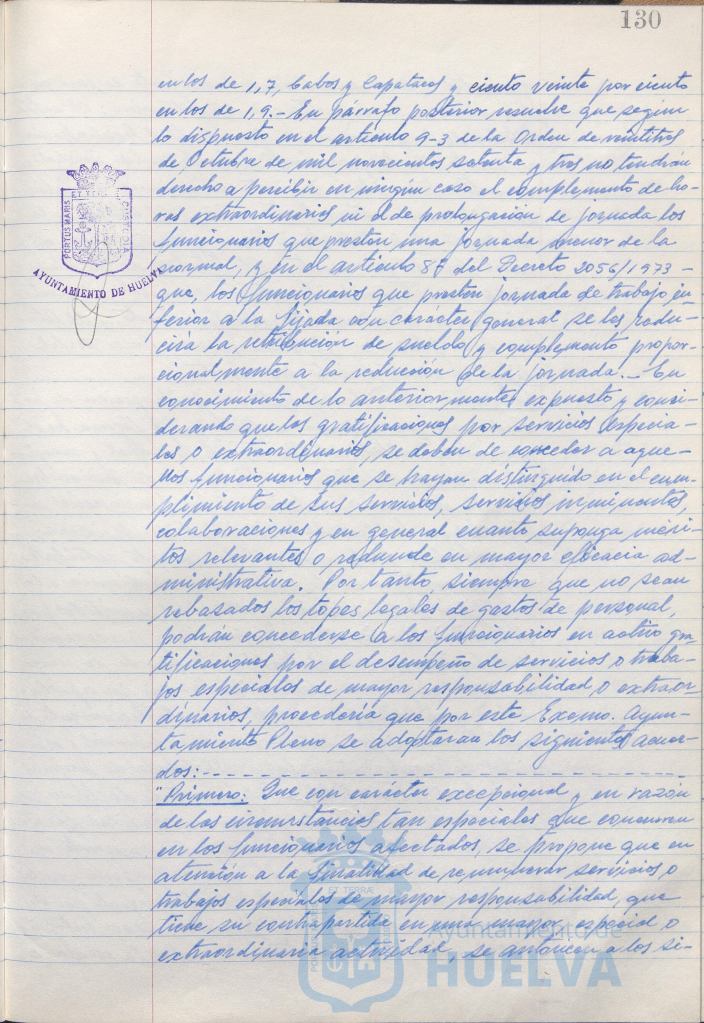 130
en los de 1,7, Cabos y Capataces y ciento veinte por ciento
en los de 1,9.- En párrafo posterior resuelve que según
lo dispuesto en el artículo 9-3 de la Orden de veintitres
de Octubre de mil novecientos setenta y tres no tendrán
derecho a percibir en ningún caso el complemento de ho-
ras extraordinarias ni el de prolongación de jornada los
funcionarios que presten una jornada menor de la
normal, y en el artículo 8º del Decreto 2056/1973 -
que, los funcionarios que presten jornada de trabajo in-
ferior a la fijada con carácter general se les redu-
cirá la retribución de sueldo y complemento propor-
cionalmente a la reducción de la jornada.- En
conocimiento de lo anteriormente expuesto y consi-
derando que las gratificaciones por servicios especia-
les o extraordinarios, se deben de conceder a aque-
llos funcionarios que se hayan distinguido en el cum-
plimiento de sus servicios, servicios inminentes,
colaboraciones y en general cuanto suponga méri-
tos relevantes o redunde en mayor eficacia ad-
ministrativa. Por tanto, siempre que no sean
rebasados los topes legales de gastos de personal,
podrán concederse a los funcionarios en activo gra-
tificaciones por el desempeño de servicios o traba-
jos especiales de mayor responsabilidad o extraor-
dinarios, procedería que por este Excmo. Ayun-
tamiento Pleno se adoptaran los siguientes acuer-
dos:-
"Primero: Que con carácter excepcional y en razón
de las circunstancias tan especiales que concurren
en los funcionarios afectados, se propone que en
atención a la finalidad de remunerar servicios o
trabajos especiales de mayor responsabilidad, que
tiene su contrapartida en una mayor, especial o
extraordinaria actividad se autoricen a los si-
PORTUS MARIS ET TERRAE CUSTODIA
AYUNTAMIENTO DE HUELVA
ET TERRAE
Ayuntamiento de
HUELVA